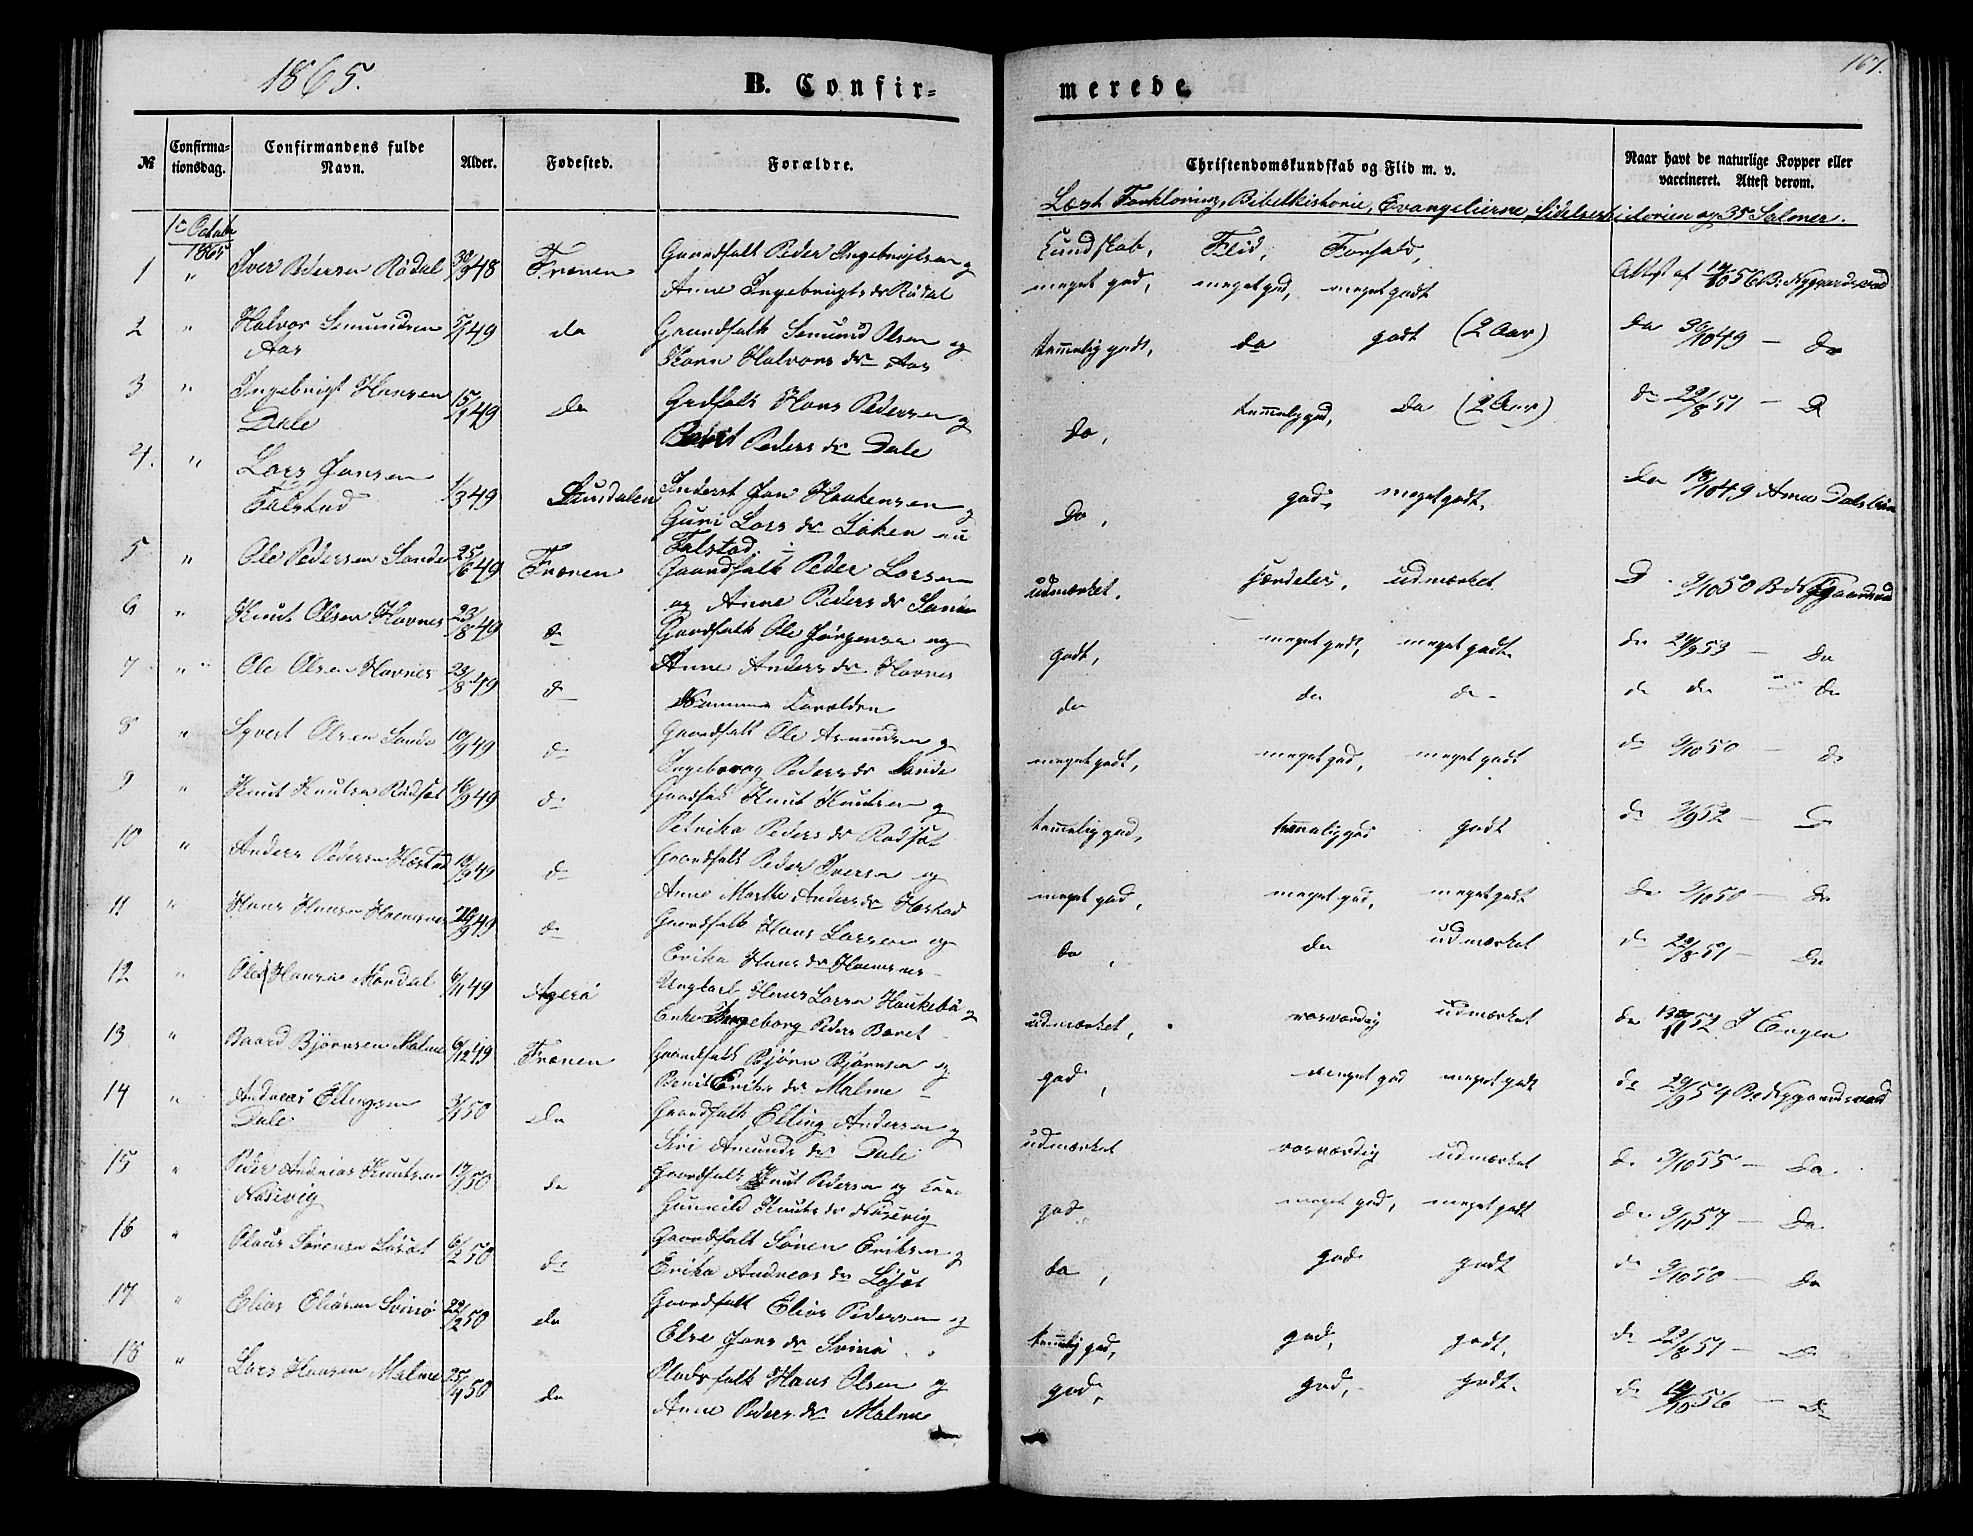 1865.
B. Confir-
merede
167.
№
Confirma-
tionsdag.
Confirmandens fulde
Navn.
Alder.
Fødested.
Forældre.
Christendomskundskab og Flid m. v.
Naar havt de naturlige Kopper eller
vaccineret. Attest derom.
Læst Forklaring, Bibelhistorie, Evangelierne, Lidelseshistorien og 35 Salmer.
1865
Kundskab, Flid, Forhold,
1 " Iver Pedersen Rødal 30/9 48 Frænen Gaardfolk Peder Ingebrigtsen og
Anne Ingebrigts dr Rødal meget god, meget god, meget godt Attest af
2 " Halvor Semundsen 5/1 49 do Gaardfolk Semund Olsen og
Aas Karen Halvors dr Aas temmelig godt, do godt (2 Aar) do 30/10 49 — do
3 " Ingebrigt Hansen 15/1 49 do Grdfolk Hans Pedersen og
Dale Peders dr Dale do, temmelig god, do (2 Aar) do 22/8 51 — D
4. " Lars Jonsen 1/3 49 Sundalen Inderst Jon Haakensen og
Falstad Guri Lars dr nu
Falstad. Do, god, meget godt. do 18/10 49
5 " Ole Pedersen Sande 25/6 49 Frænen Gaardfolk Peder Larsen
og Anne Peders dr Sande udmærket, særdeles, udmærket D 9/10 50
6 " Knut Olsen Havnes 23/8 49 do Gaardfolk Ole Jørgensen og
Anne Anders dr Havnes godt, meget god, meget godt. do 24/9 53 — do
7 " Ole Olsen Havnes 23/8 49 do
Samme Forældre do do do do do do
8 " Syvert Olsen Sande 10/9 49 do Gaardfolk Ole Asmundsen og
Ingeborg Peders dr Sande meget godt, meget god, meget godt do 9/10 50 — do
9 " Knut Knutsen Rødsæt 16/9 49 do Gaardfolk Knut Knutsen og
Petrika Peders dr Rødsæt temmelig god, temmelig god godt do 3/9 52
10 " Anders Pedersen Hostad 18/9 49 do Gaardfolk Peder Iversen og
Anne Marthe Anders dr Hostad meget god, meget god, meget godt do 9/10 50 — do
11 " Hans Hansen 49 do Gaardfolk Hans Larsen og
Erika Hans dr do, do udmærket do 22/8 51 — do
12 " Ole Hansen Mordal 6/11 49 Agerø Ungkarl Hans Larsen Haukebø og
Enke Ingeborg Peders udmærket, rosværdig udmærket do
13 " Baard Bjørnsen Malme 6/12 49 Frænen Gaardfolk Bjørn Bjørnsen og
Beret Eriks dr Malme god, meget god meget godt do
14 " Andreas Ellingsen 3/1 50 do Gaardfolk Elling Andersen og
Dale Siri Amunds dr Dale udmærket rosværdig udmærket do 9/10 55 — do.
15 " Peder Andreas Knutsen 17/1 50 do Gaardfolk Knut Pedersen og Kone
Næsvig Gunnild Knuts dr Næsvig god. meget god, meget godt do 9/11 57 — do.
16 " Olaus Sørensen Løsæt 6/2 50 do Gaardfolk Søren Eriksen og
Erika Andreas dr Løsæt do, god godt do 9/10 50 — do
17 " Elias Eliasen Svinø 22/2 50 do Gaardfolk Elias Pedersen og
Else Jons dr Svinø temmelig god, god, godt. do 22/8 51
18 " Lars Hansen Malme 25/4 50 do Pladsfolk Hans Olsen og
Anne Peders dr Malme god, god, godt. do 56